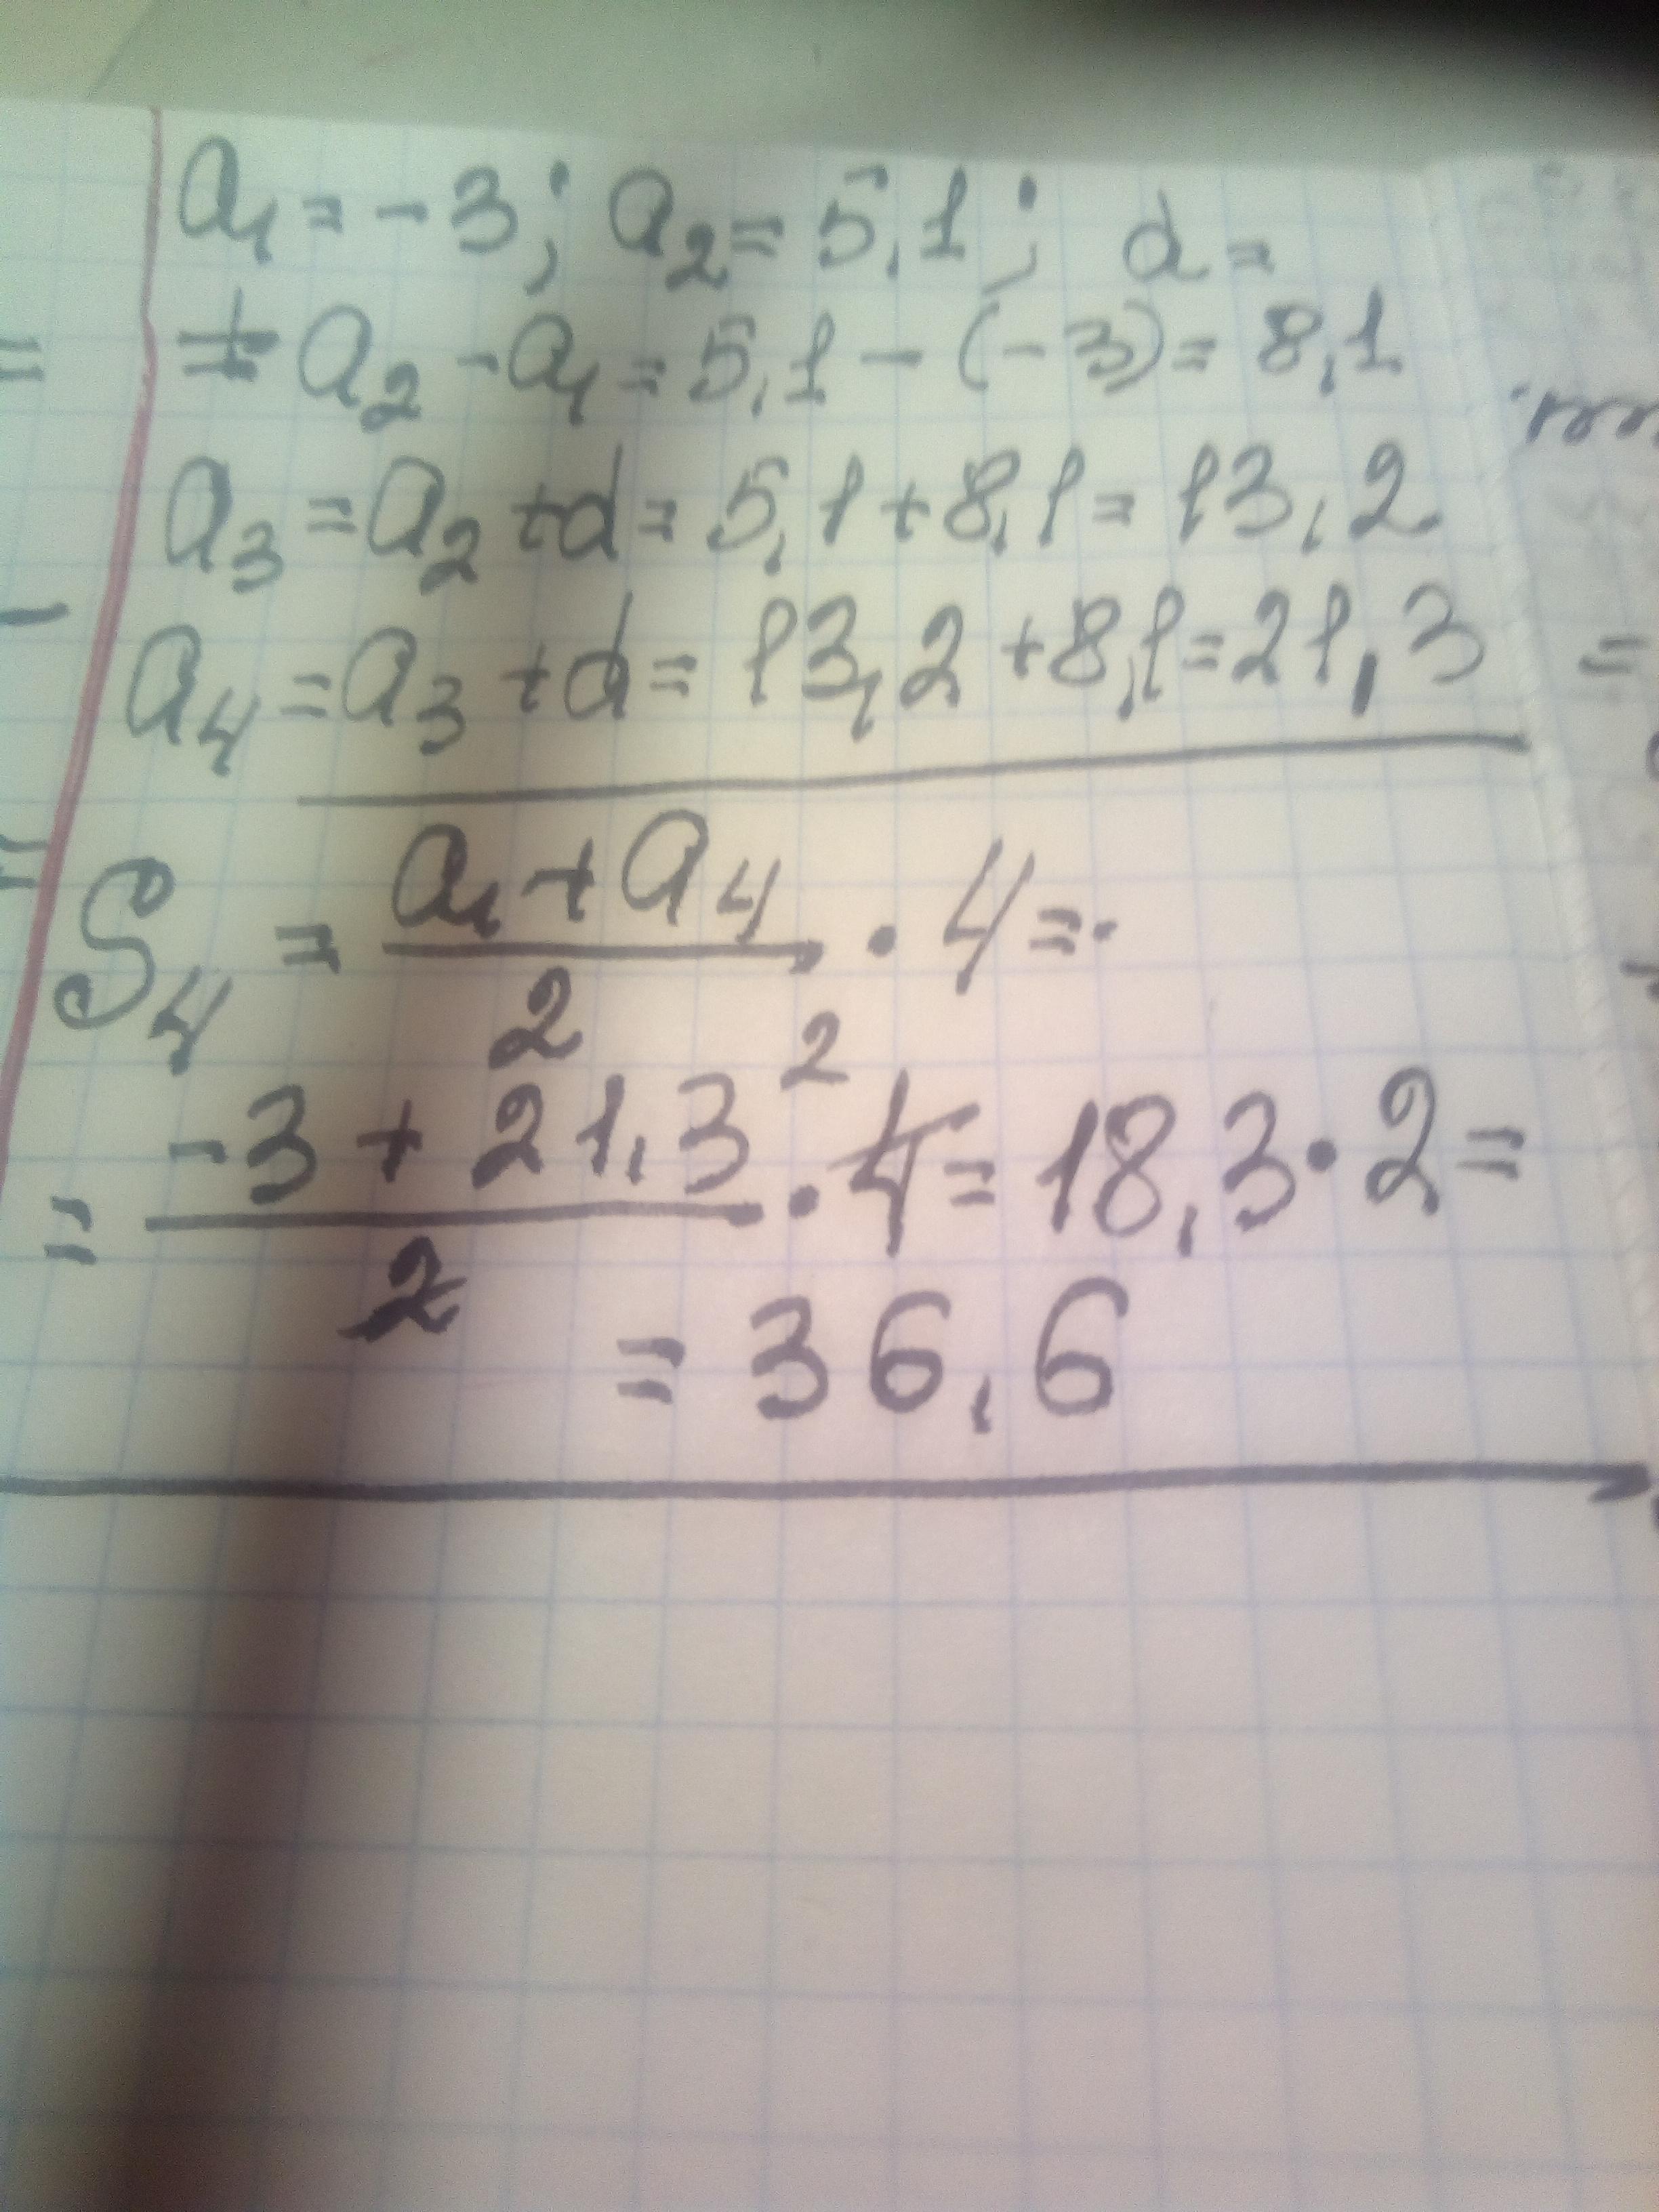 a₁ = -3; a₂ = 5,1; d =
= a₂ - a₁ = 5,1 - (-3) = 8,1
a₃ = a₂ + d = 5,1 + 8,1 = 13,2
a₄ = a₃ + d = 13,2 + 8,1 = 21,3
S₄ = (a₁ + a₄)/2 · 4 =
= (-3 + 21,3)/2 · 4 = 18,3 · 2 =
2
= 36,6